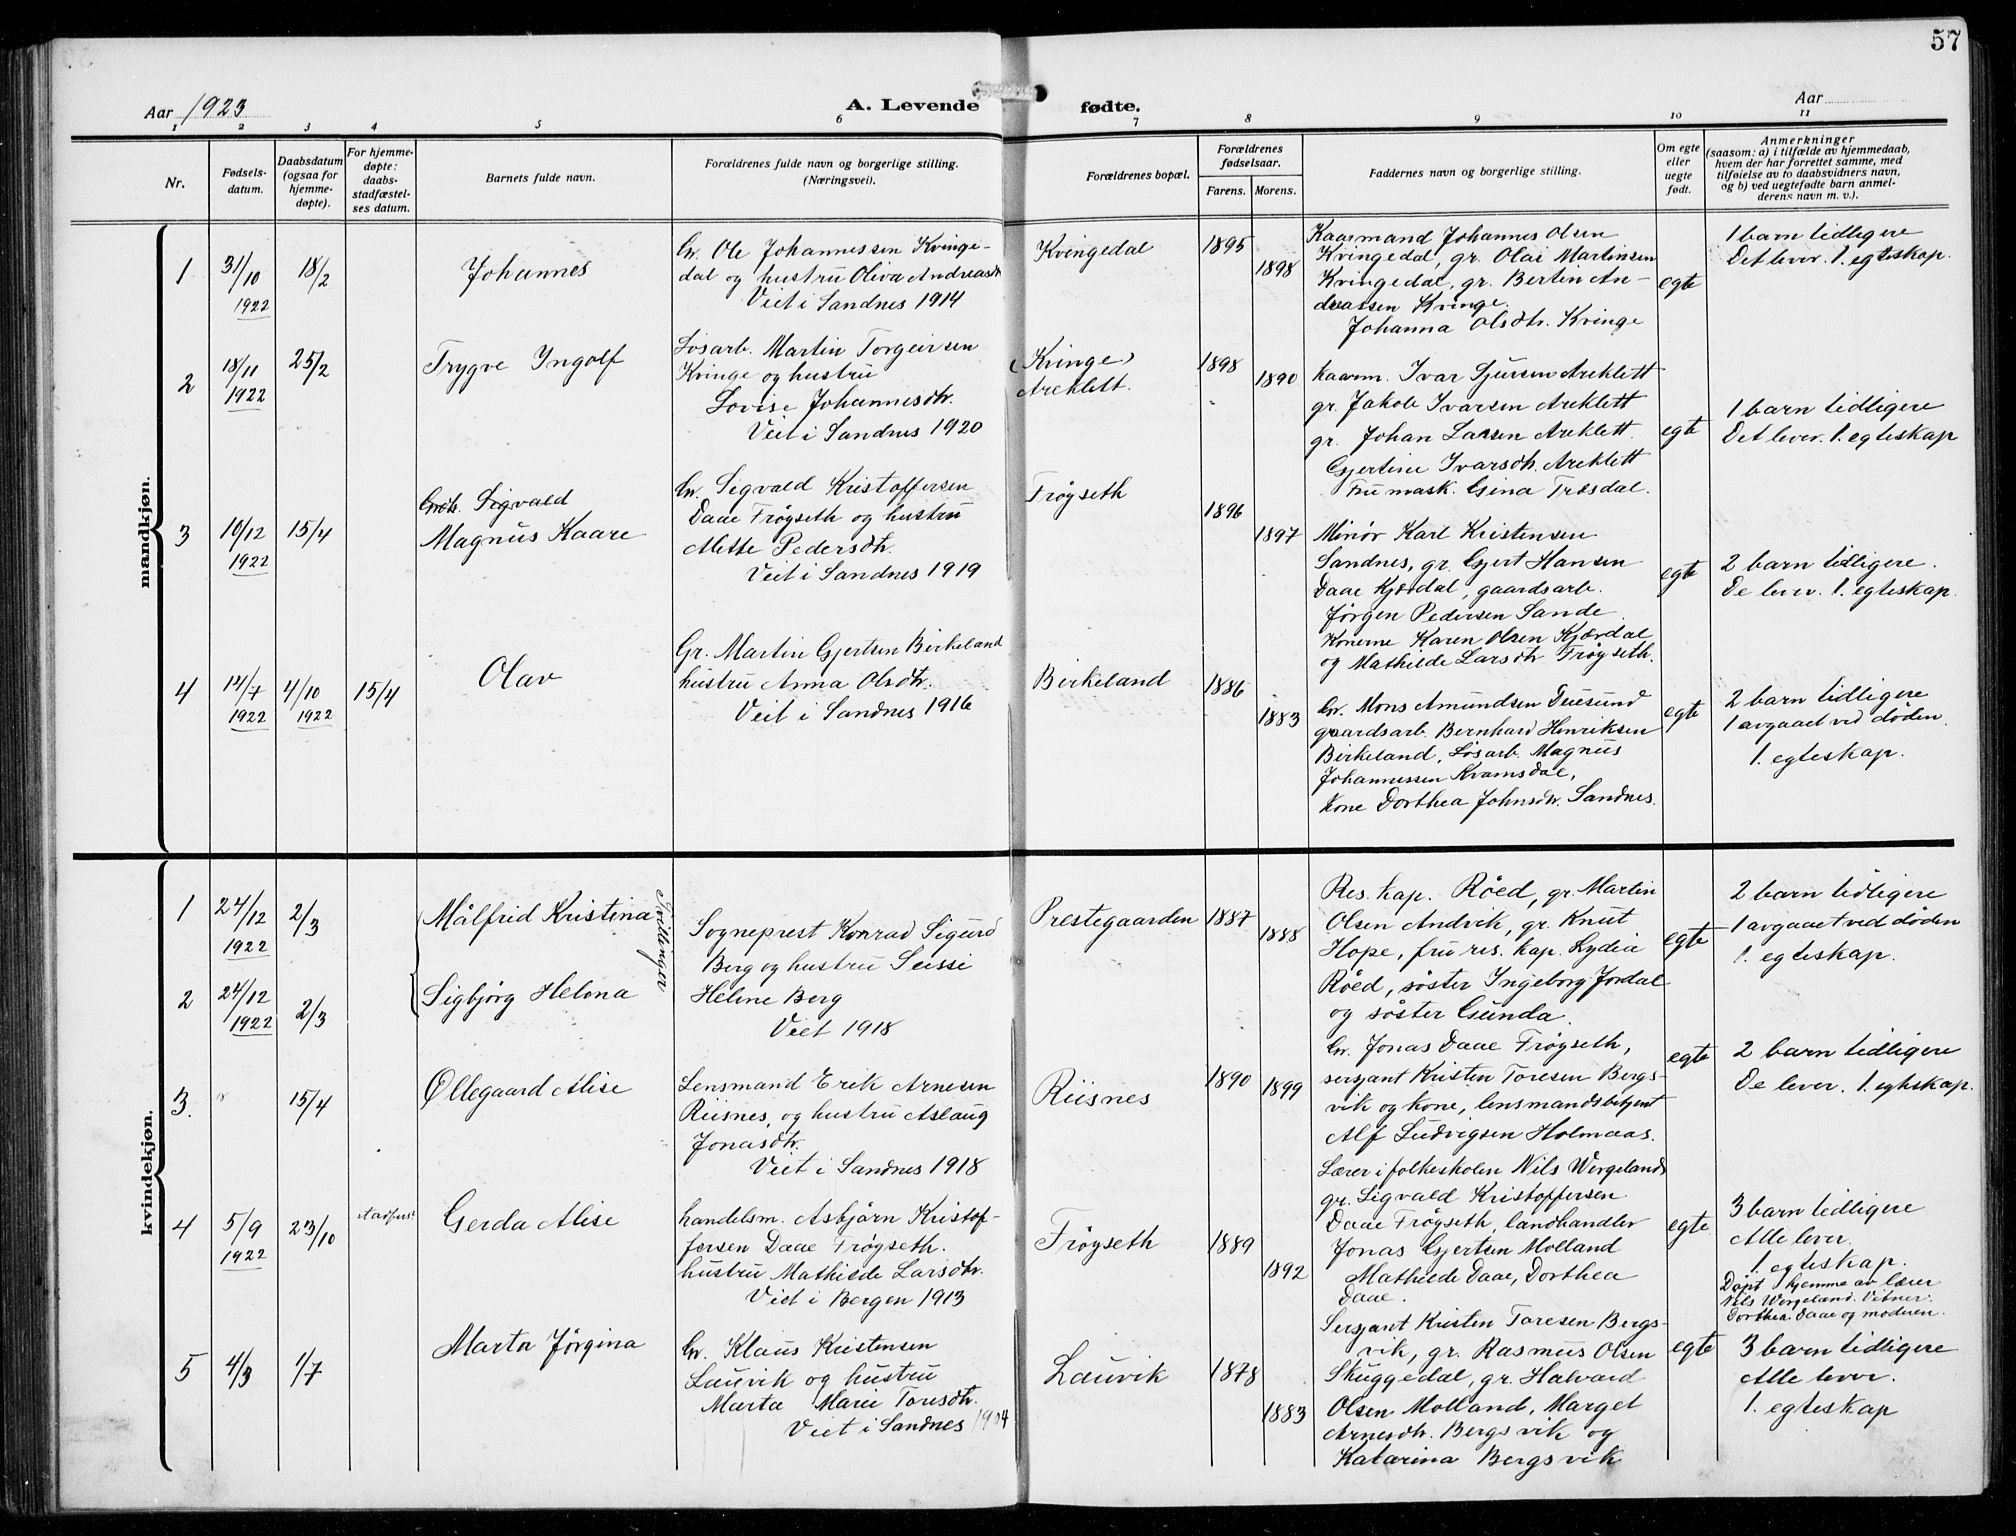 57
Aar 1923
A. Levende fødte.
Aar
1 2 3 4 5 6 7 8 9 10 11
Nr.
Fødsels-
datum.
Daabsdatum
(ogsaa for
hjemme-
døpte).
For hjemme-
døpte:
daabs-
stadfæstel-
ses datum.
Barnets fulde navn.
Forældrenes fulde navn og borgerlige stilling.
(Næringsvei).
Forældrenes bopæl.
Forældrenes
fødselsaar.
Farens. Morens.
Faddernes navn og borgerlige stilling.
Om egte
eller
uegte
født.
Anmerkninger
(saasom: a) i tilfælde av hjemmedaab,
hvem der har forrettet samme, med
tilføielse av to daabsvidners navn,
og b) ved uegtefødte barn anmel-
derens navn m. v.).
mandkjøn.
1
31/10
1922
18/2
Johannes
Gr. Ole Johannessen Kvinge-
dal og hustru Oliva Andreasdtr
Viet i Sandnes 1914
Kvingedal
1895
1898
Kaarmand Johannes Olsen
Kvingedal, gr. Olai Martinsen
Kvingedal, gr. Bertin An-
dreassen Kvinge.
Johanna Olsdtr. Kvinge
egte
1 barn tidligere
Det lever. 1. egteskap.
2
18/11
1922
25/2
Trygve Yngolf
Løsarb. Martin Torgeirsen
Kvinge og hustru
Lovise Johannesdtr.
Viet i Sandnes 1920
(Kvinge)
Areklett.
1898
1890
kaarm. Ivar Sjursen Areklett
gr. Jakob Ivarsen Areklett
gr. Johan Larsen Areklett.
Gjertine Ivarsdtr. Areklett
Fru mask. Gina Træsdal.
egte
1 barn tidligere
Det lever. 1. egteskap
3
10/12
1922
15/4
Sigvald
Magnus Kaare
Gr. Sigvald Kristoffersen
Daae Frøyseth og hustru
Alette Pedersdtr.
Viet i Sandnes 1919
Frøyseth
1896
1897
Minør Karl Kristensen
Sandnes, gr. Gjert Hansen
Daae Kjærdal, gaardsarb.
Jørgen Pedersen Sande
Konerne Karen Olsen Kjærdal
og Mathilde Larsdtr Frøyseth.
egte
2 barn tidligere.
De lever. 1. egteskap.
4
14/7
1922
4/10
1922
15/4
Olav
Gr. Martin Gjertsen Birkeland
hustru Anna Olsdtr.
Viet i Sandnes 1916
Birkeland
1886
1883
Gr. Mons Amundsen Duesund
gaardsarb. Bernhard Henriksen
Birkeland, Løsarb. Magnus
Johannessen Kvamsdal,
Kone Dorthea Johnsdtr. Sandnes.
egte
2 barn tidligere
1 avgaaet ved døden.
1. egteskap.
kvindekjøn.
1
24/12
1922
2/3
Målfrid Kristina
Tvillinger
Sogneprest Konrad Sigurd
Berg og hustru Seissi
Helene Berg
Viet 1918
Prestegaarden
1887
1888
Res. kap. Røed, gr. Martin
Olsen Andvik, gr. Knut
Hope, fru res. kap. Lydia
Røed, søster Ingeborg Jordal
og søster Gunda.
egte
2 barn tidligere
1 avgaaet ved døden
1. egteskap.
2
24/12
1922
2/3
Sigbjørg Helena
3.
15/4
Øllegaard Alise
Lensmand Erik Arnesen
Riisnes, og hustru Aslaug
Jonasdtr.
Viet i Sandnes 1918
Riisnes
1890
1899
Gr. Jonas Daae Frøyseth,
sersjant Kristen Toresen Bergs-
vik og kone, lensmandsbetjent
Alf Ludvigsen Holmaas.
egte
2 barn tidligere
De lever. 1. egteskap.
4
5/9
1922
23/10
Gerda Alise
handelsm. Asbjørn Kristof-
fersen Daae Frøyseth.
hustru Mathilde Larsdtr.
Viet i Bergen 1913
Frøyseth
1889
1892
Lærer i folkeskolen Nils Wergeland
gr. Sigvald Kristoffersen
Daae Frøyseth, landhandler
Jonas Gjertsen Molland
Mathilde Daae, Dorthea
Daae.
egte
3 barn tidligere
Alle lever.
1. egteskap.
Døpt hjemme av lærer
Nils Wergeland. Vitner:
Dorthea Daae og moderen.
5
4/3
1/7
Marta Jørgina
Gr. Klaus Kristensen
Lauvik og hustru
Marta Marie Toresdtr.
Viet i Sandnes 1904
Lauvik
1878
1883
Sersjant Kristen Toresen Bergs-
vik, gr. Rasmus Olsen
Skuggedal, gr. Halvard
Olsen Molland, Marget
Arnesdtr. Bergsvik og
Katarina Bergsvik
egte
3 barn tidligere
Alle lever.
1. egteskap